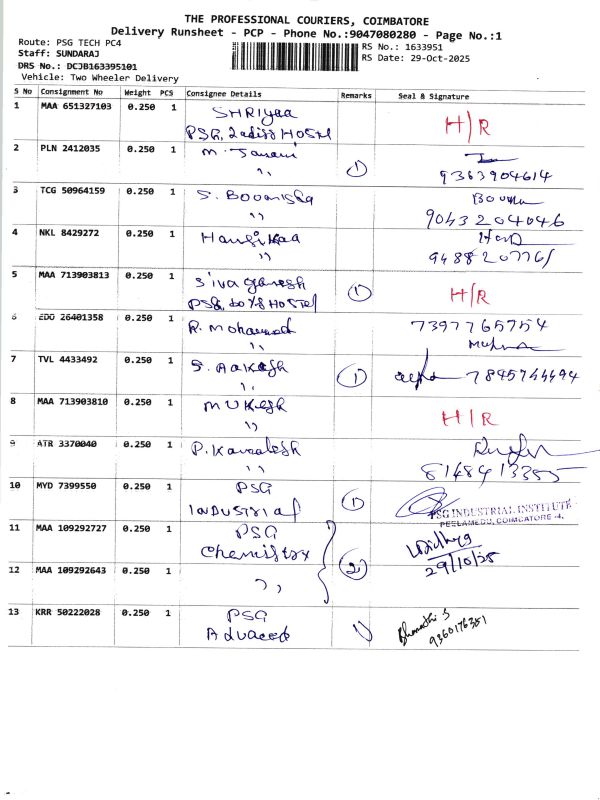 THE PROFESSIONAL COURIERS, COIMBATORE
Delivery Runsheet - PCP - Phone No.:9047080280 - Page No.:1
Route: PSG TECH PC4
RS No.: 1633951
Staff: SUNDARAJ
RS Date: 29-Oct-2025
DRS No.: DCJB163395101
Vehicle: Two Wheeler Delivery
S No Consignment No Weight PCS Consignee Details Remarks Seal & Signature
1 MAA 651327103 0.250 1 SHRiyaa H/R
PSG, Ladies HOSTEL
2 PLN 2412035 0.250 1 M. Janani
,, 1 9363904614
3 TCG 50964159 0.250 1 S. Boomisha
,, 9043204046
4 NKL 8429272 0.250 1 Harsikaa
,, 9488207761
5 MAA 713903813 0.250 1 Siva ganesh 1 H/R
PSG, boys HOSTEL
6 EDO 26401358 0.250 1 R. Mohammed 7397765754
,,
7 TVL 4433492 0.250 1 S. Aakash 1
,,
8 MAA 713903810 0.250 1 MUKesh H/R
,,
9 ATR 3370040 0.250 1 P. Kamalesh
,, 8148413355
10 MYD 7399550 0.250 1 PSG 1 PSG INDUSTRIAL INSTITUTE
INDUSTRIAL PEELAMEDU, COIMBATORE -4.
11 MAA 109292727 0.250 1 PSG
Chemistry 2 29/10/25
12 MAA 109292643 0.250 1 ,,
13 KRR 50222028 0.250 1 PSG 1 Bharathi S
Advanced 9360176351